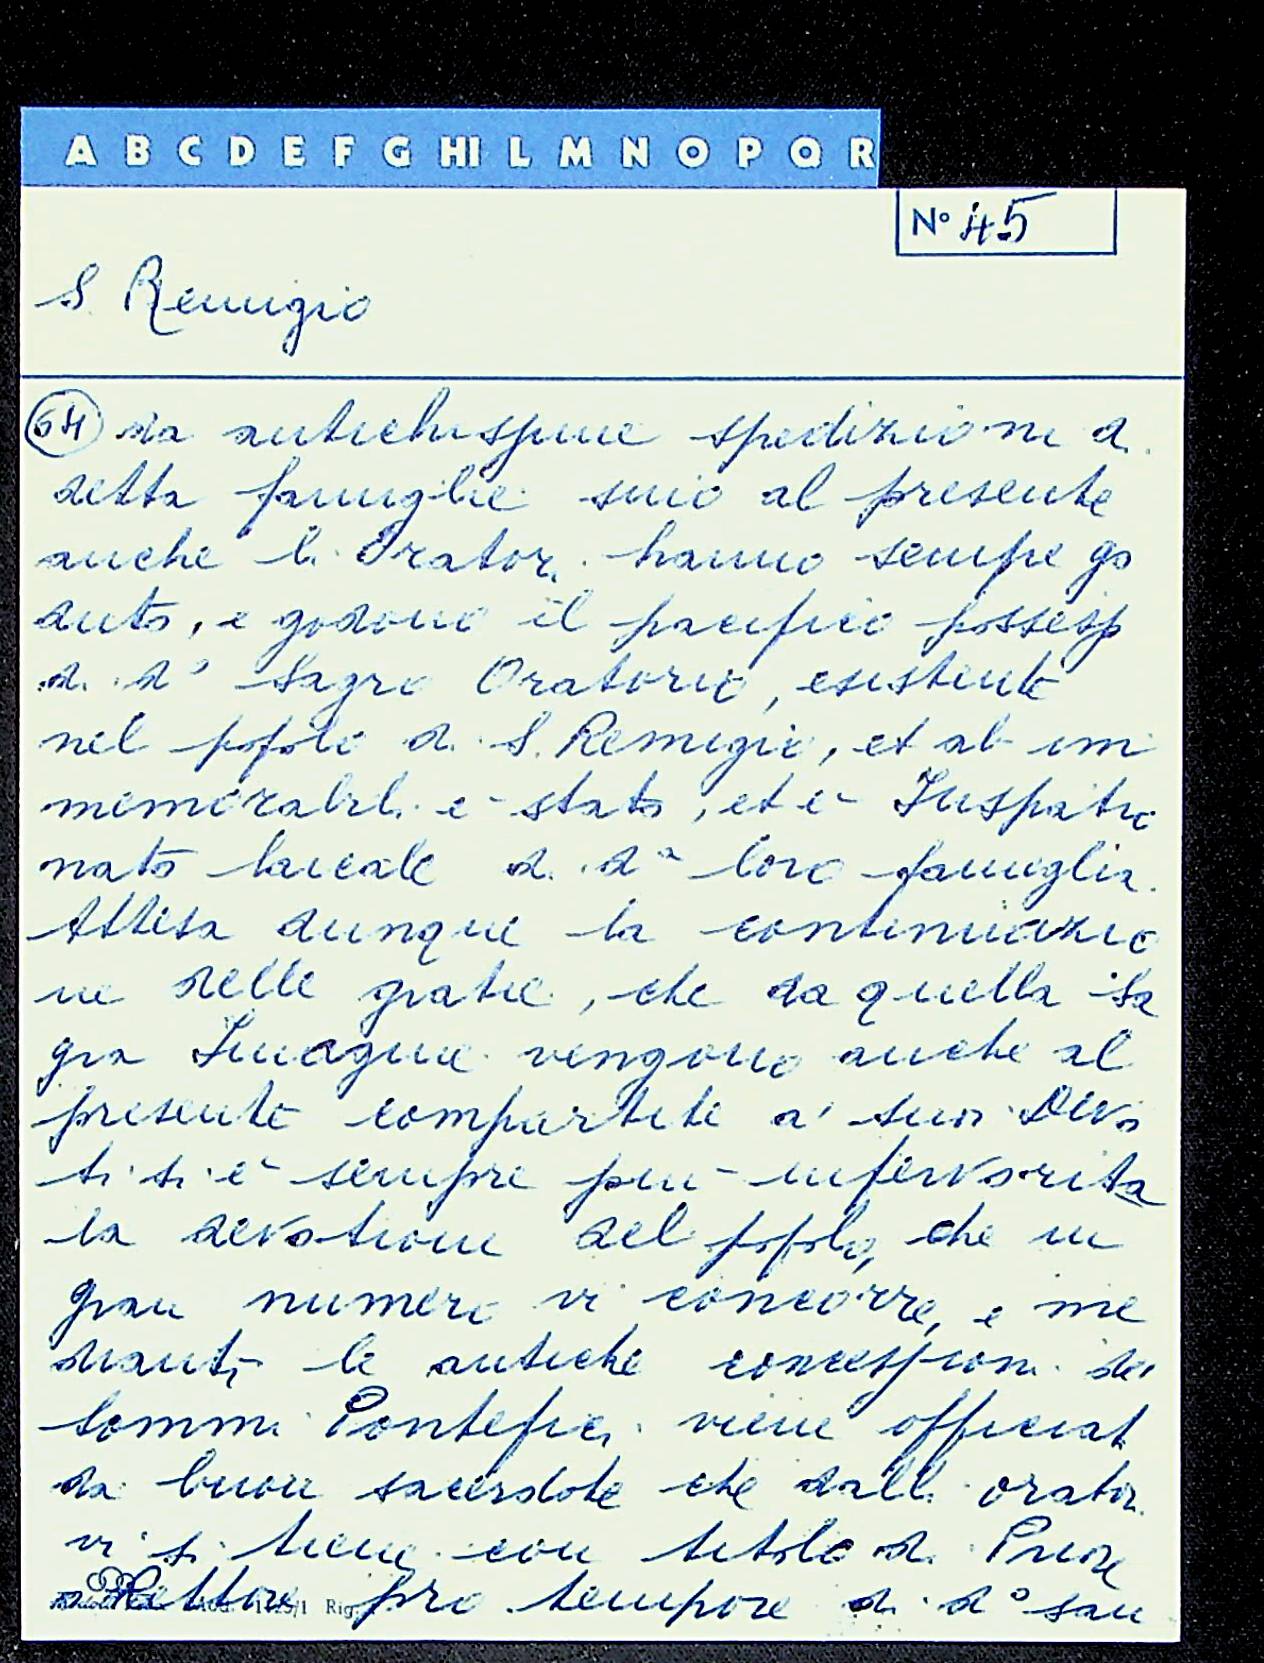 A B C D E F G HI L M N O P Q R
N° 45
S. Remigio
64 da antichissime spedizioni di
detta famiglie sino al presente
anche li Oratori hanno sempre go
duto, e godono il pacifico possesso
di d° Sagro Oratorio, esistente
nel popolo di S. Remigio, et ab im
memorabili è stato, et è Juspatro
nato laicale di d^a loro famiglia.
Attesa dunque la continuazio
ne delle gratie, che da quella Sa
gra Imagine vengono anche al
presente compartite a' suoi Devo
ti si è sempre più infervorita
la devotione del popolo, che in
gran numero vi concorre, e me
dianti le antiche concessioni dei
Sommi Pontefici viene officiat
da buon sacerdote che dalli oratori
vi si tiene con titolo di Priore
o Rettore pro tempore di d° san
1125/1 Rig.